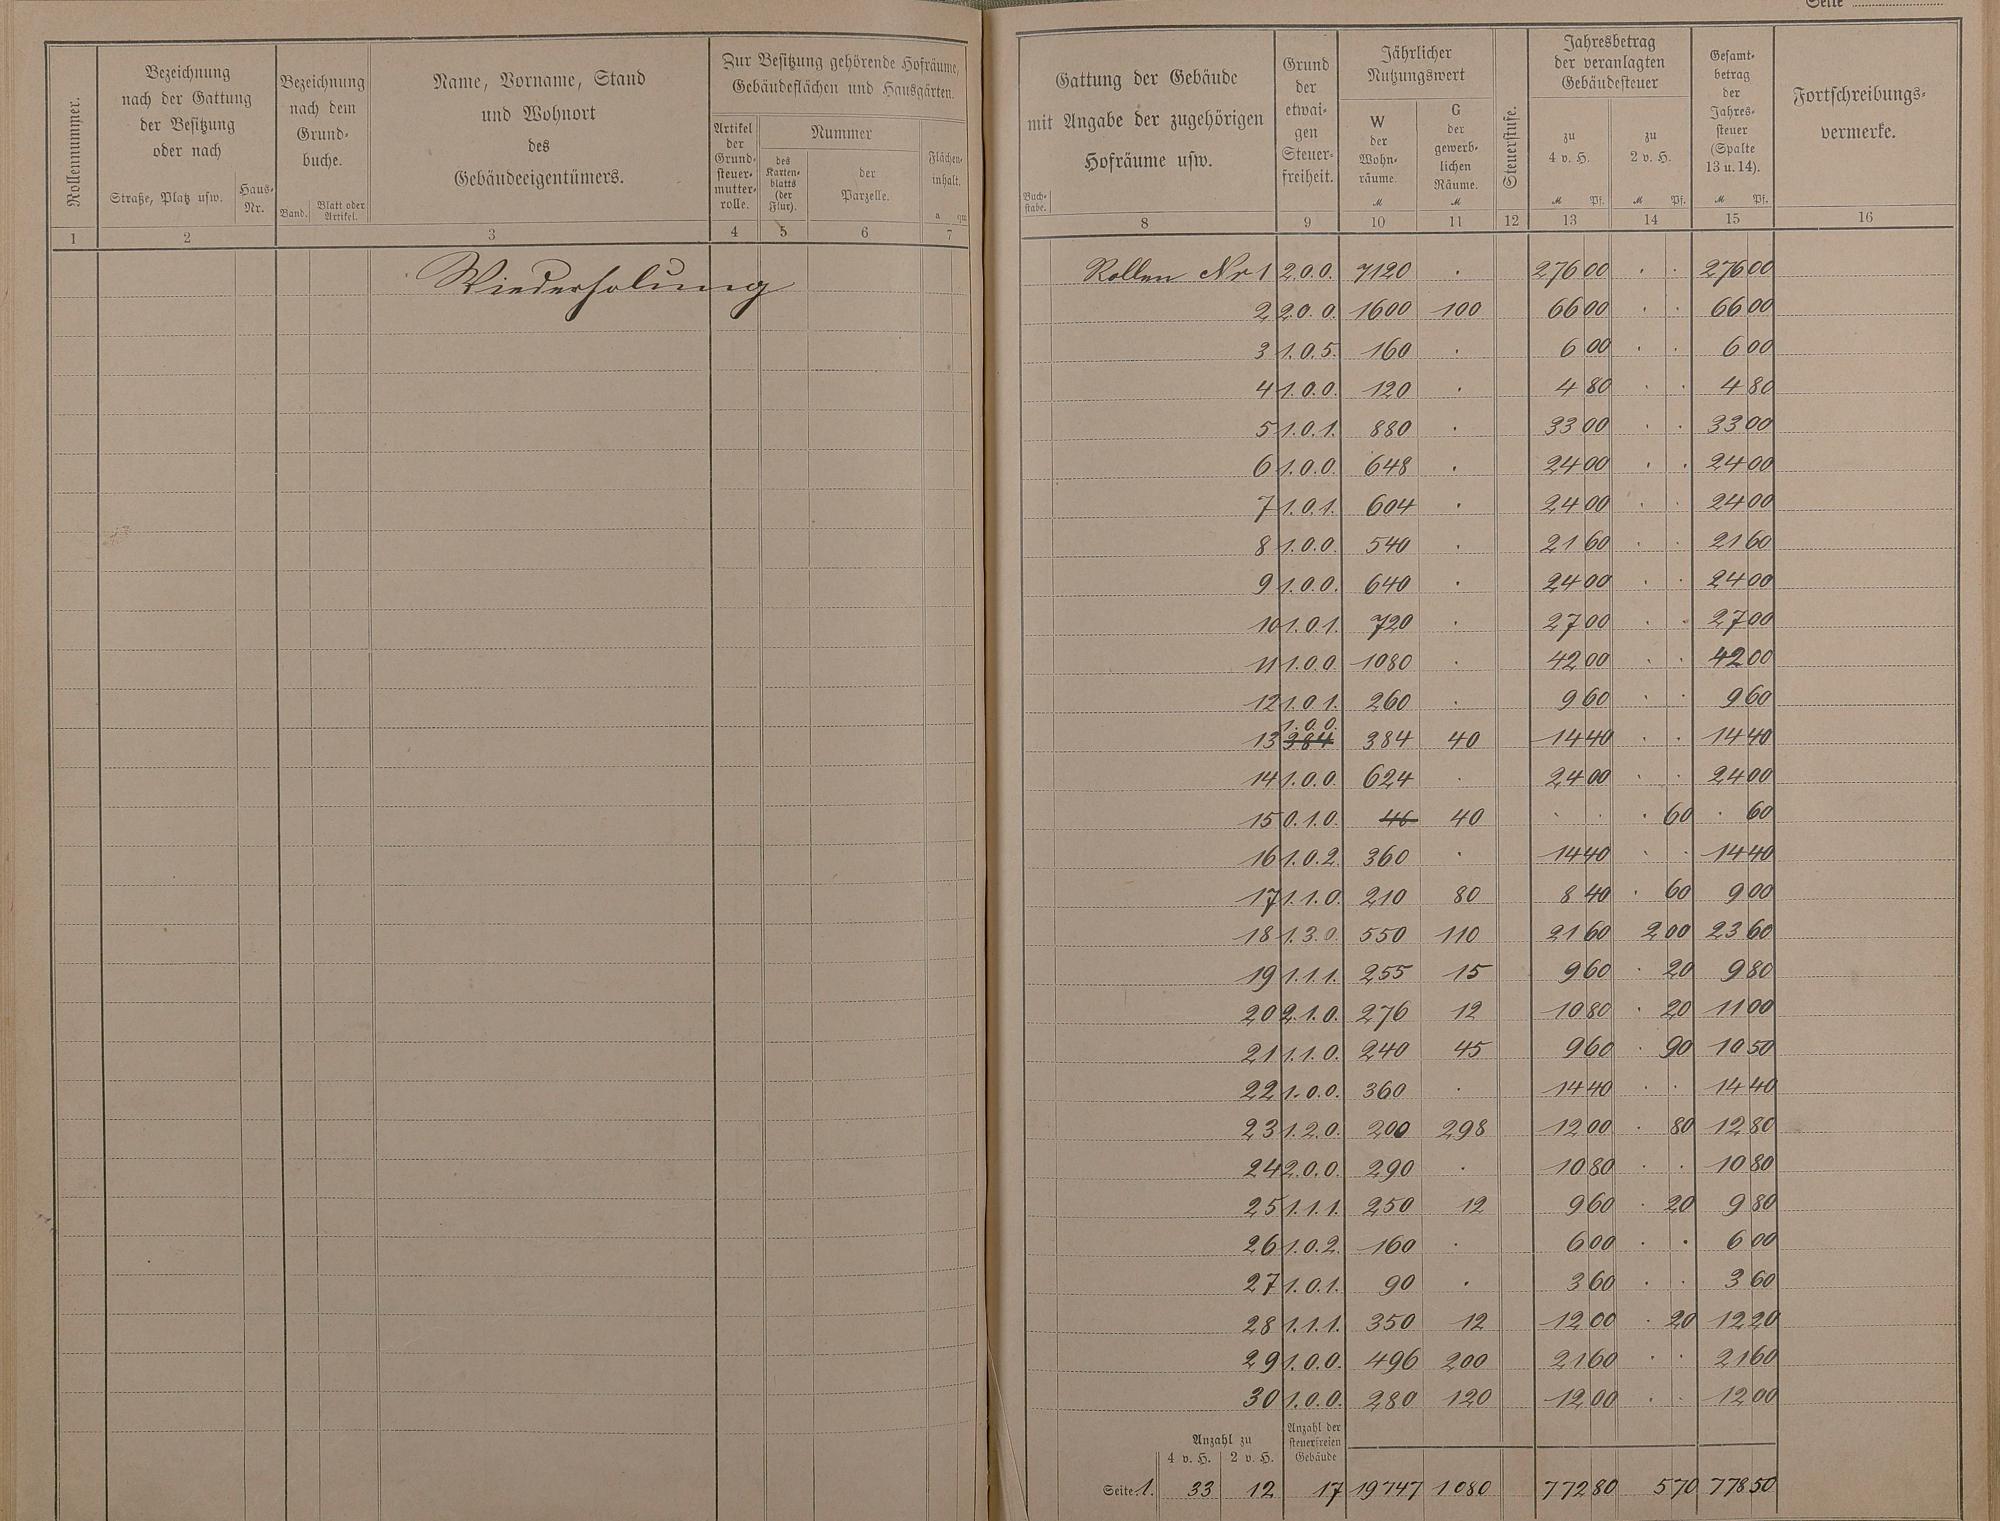 Seite
Rollennummer.
Bezeichnung
nach der Gattung
der Besitzung
oder nach
Straße, Platz usw.
Haus-
Nr.
Bezeichnung
nach dem
Grund-
buche.
Band.
Blatt oder
Artikel.
Name, Vorname, Stand
und Wohnort
des
Gebäudeeigentümers.
Zur Besitzung gehörende Hofräume,
Gebäudeflächen und Hausgärten.
Artikel
der
Grund-
steuer-
mutter-
rolle.
Nummer
des
Karten-
blatts
(der
Flur).
der
Parzelle.
Flächen-
inhalt.
a qm
1 2 3 4 5 6 7
Wiederholung
Gattung der Gebäude
mit Angabe der zugehörigen
Hofräume usw.
Buch-
stabe.
Grund
der
etwai-
gen
Steuer-
freiheit.
Jährlicher
Nutzungswert
W
der
Wohn-
räume.
M
G
der
gewerb-
lichen
Räume.
M
Steuerstufe.
Jahresbetrag
der veranlagten
Gebäudesteuer
zu
4 v. H.
M Pf.
zu
2 v. H.
M Pf.
Gesamt-
betrag
der
Jahres-
steuer
(Spalte
13 u. 14).
M Pf.
Fortschreibungs-
vermerke.
8 9 10 11 12 13 14 15 16
Rollen Nr 1 2.0.0. 7120 . 276 00 . . 276 00
2 2.0.0. 1600 100 66 00 . . 66 00
3 1.0.5. 160 . 6 00 . . 6 00
4 1.0.0. 120 . 4 80 . . 4 80
5 1.0.1. 880 . 33 00 . . 33 00
6 1.0.0. 648 . 24 00 . . 24 00
7 1.0.1. 604 . 24 00 . . 24 00
8 1.0.0. 540 . 21 60 . . 21 60
9 1.0.0. 640 . 24 00 . . 24 00
10 1.0.1. 720 . 27 00 . . 27 00
11 1.0.0. 1080 . 42 00 . . 42 00
12 1.0.1. 260 . 9 60 . . 9 60
1.0.0.
13 384 384 40 14 40 . . 14 40
14 1.0.0. 624 . 24 00 . . 24 00
15 0.1.0. 46 40 . . . 60 . 60
16 1.0.2. 360 . 14 40 . . 14 40
17 1.1.0. 210 80 8 40 . 60 9 00
18 1.3.0. 550 110 21 60 2 00 23 60
19 1.1.1. 255 15 9 60 . 20 9 80
20 2.1.0. 276 12 10 80 . 20 11 00
21 1.1.0. 240 45 9 60 . 90 10 50
22 1.0.0. 360 . 14 40 . . 14 40
23 1.2.0. 200 298 12 00 . 80 12 80
24 2.0.0. 290 . 10 80 . . 10 80
25 1.1.1. 250 12 9 60 . 20 9 80
26 1.0.2. 160 . 6 00 . . 6 00
27 1.0.1. 90 . 3 60 . . 3 60
28 1.1.1. 350 12 12 00 . 20 12 20
29 1.0.0. 496 200 21 60 . . 21 60
30 1.0.0. 280 120 12 00 . . 12 00
Anzahl zu
4 v. H. 2 v. H.
Anzahl der
steuerfreien
Gebäude
Seite 1. 33 12 17 19747 1080 772 80 5 70 778 50